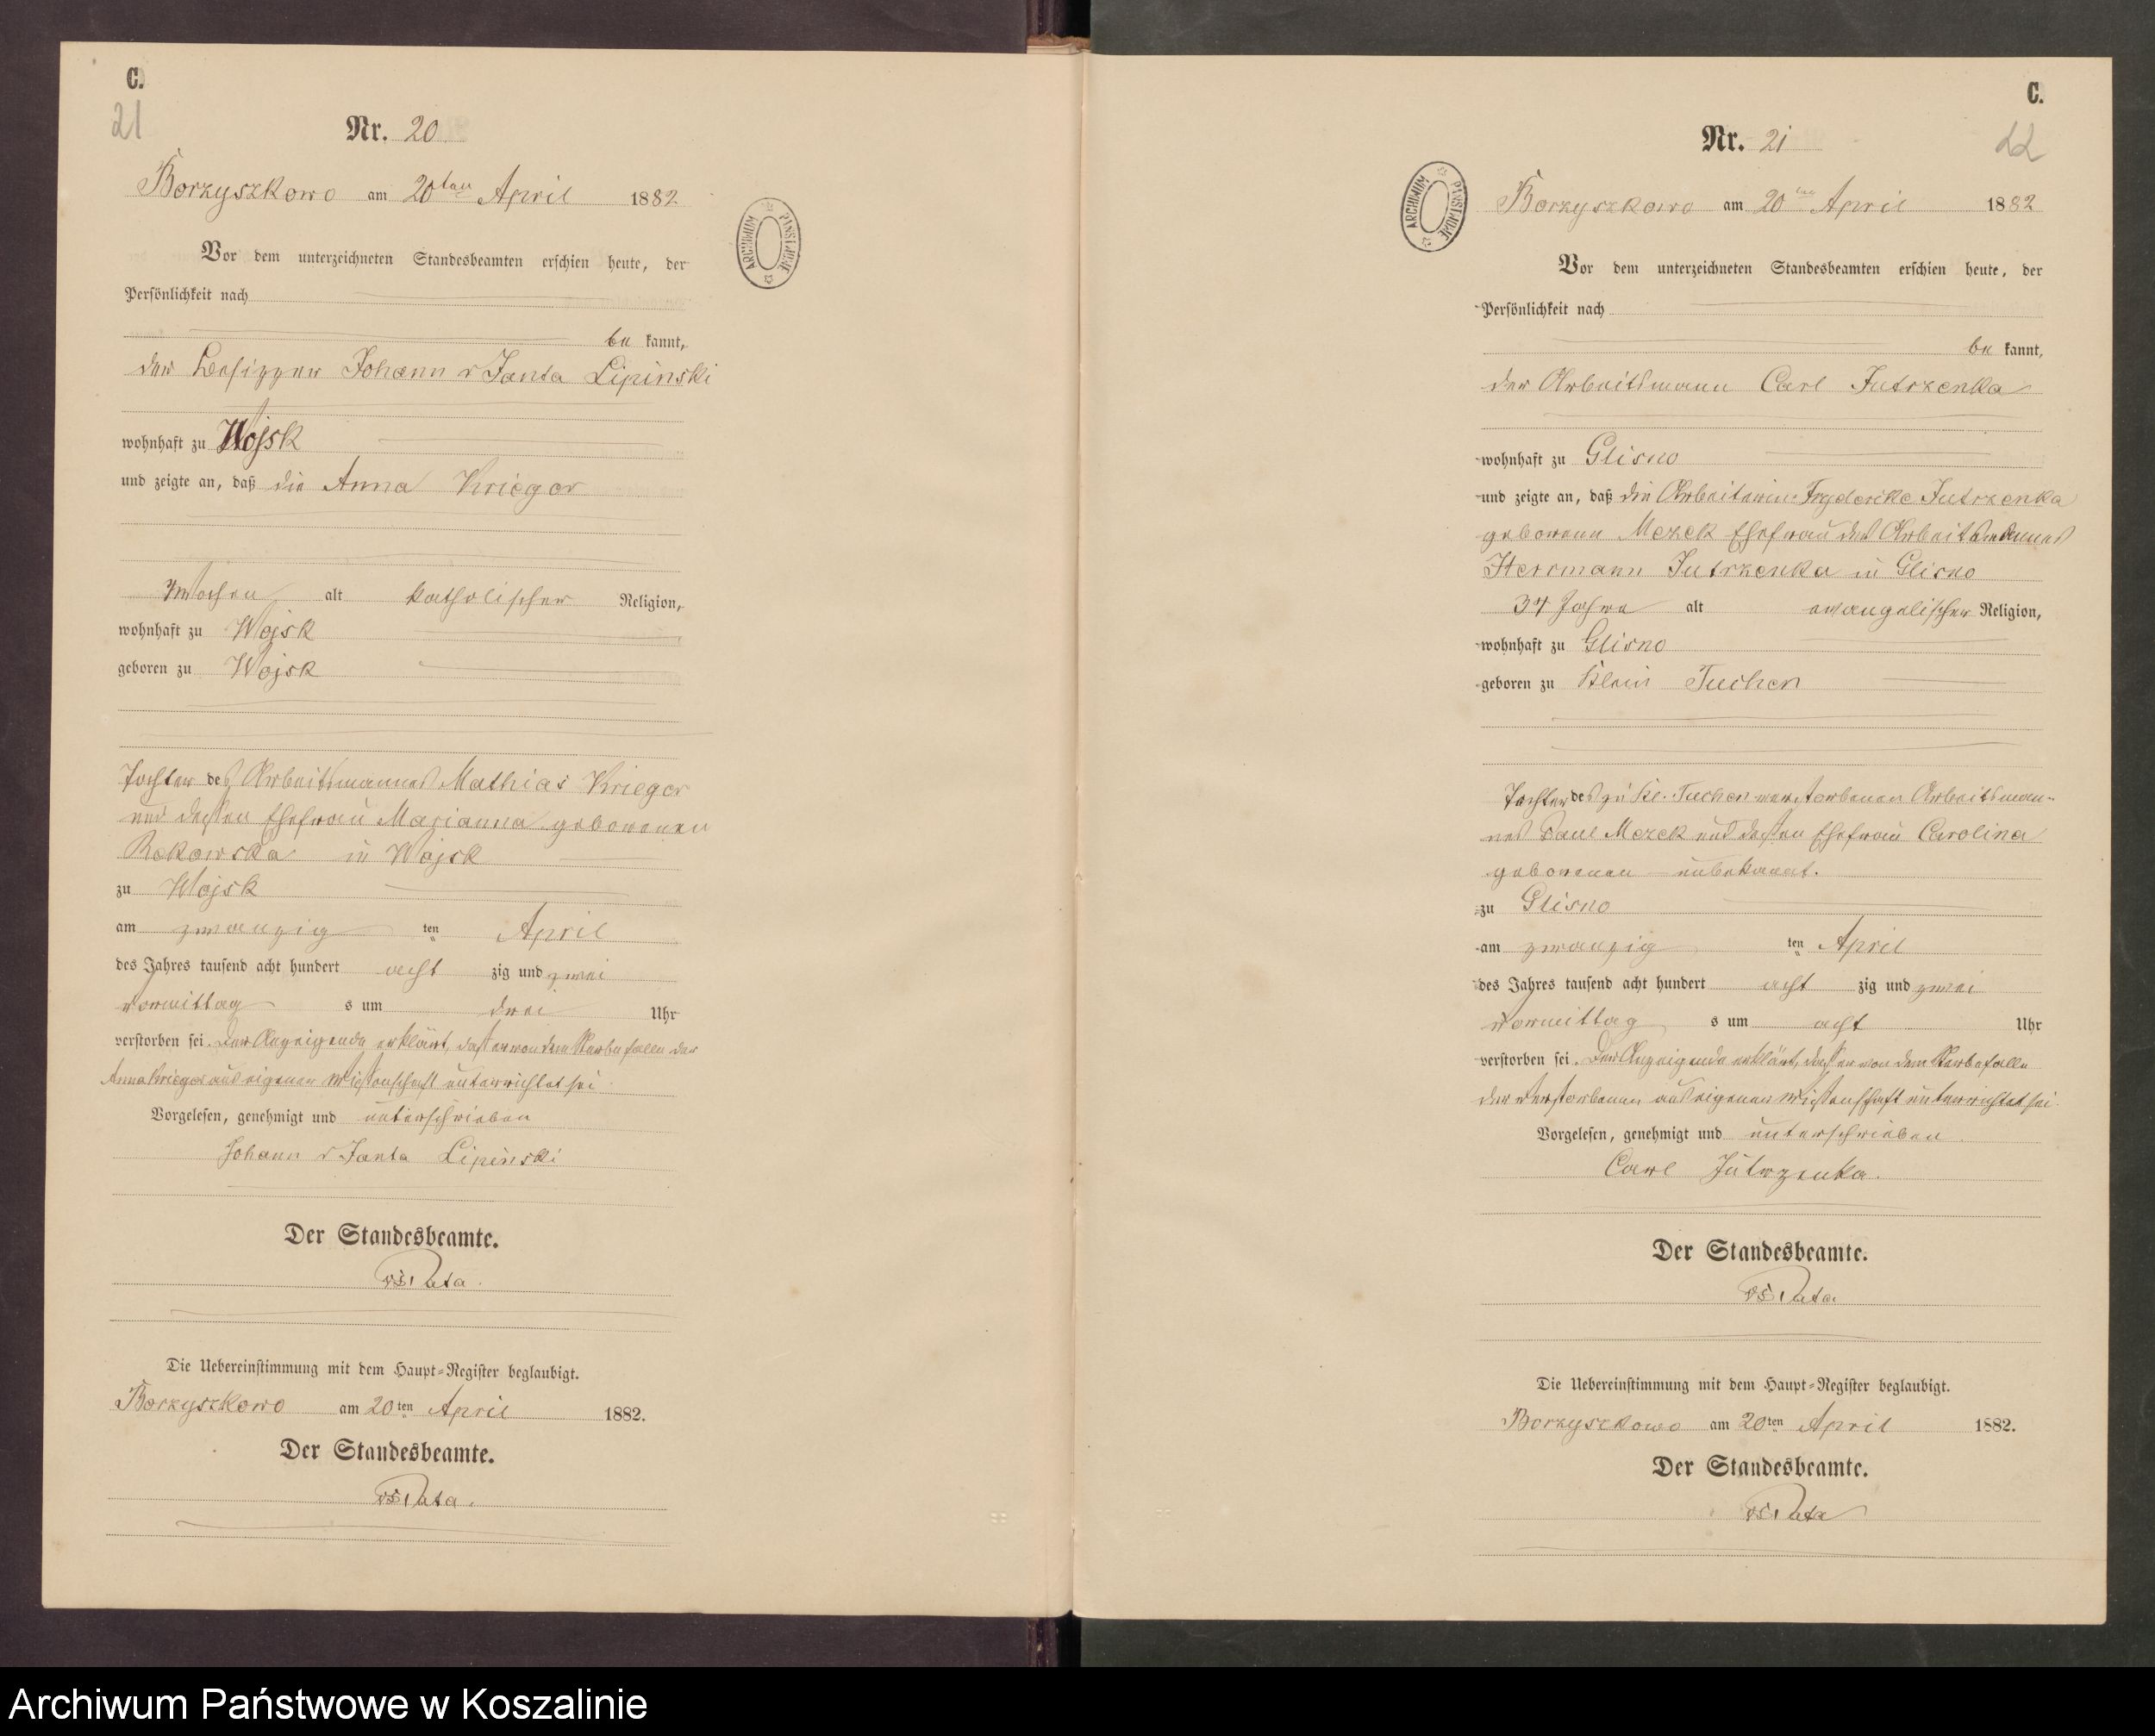 C.
21
Nr. 20
Borzyszkowo am 20ten April 1882
Vor dem unterzeichneten Standesbeamten erschien heute, der
Persönlichkeit nach
be kannt,
der Besitzer Johann v Janta Lipinski
wohnhaft zu Wojsk
und zeigte an, daß die Anna Krieger
Wochen alt katholischer Religion,
wohnhaft zu Wojsk
geboren zu Wojsk
Tochter des Arbeitsmannes Mathias Krieger
und dessen Ehefrau Marianna geborenen
Rekowska in Wojsk
zu Wojsk
am zwanzig ten April
des Jahres tausend acht hundert acht zig und zwei
vormittag s um drei Uhr
verstorben sei. Der Anzeigende erklärt, daß er von dem Sterbefalle der
Anna Krieger aus eigener Wissenschaft unterrichtet sei.
Vorgelesen, genehmigt und unterschrieben
Johann v Janta Lipinski
Der Standesbeamte.
Die Uebereinstimmung mit dem Haupt-Register beglaubigt.
Borzyszkowo am 20ten April 1882.
Der Standesbeamte.
ARCHIWUM PAŃSTWOWE
C.
22
Nr. 21
ARCHIWUM PAŃSTWOWE
Borzyszkowo am 20ten April 1882
Vor dem unterzeichneten Standesbeamten erschien heute, der
Persönlichkeit nach
be kannt,
der Arbeitsmann Carl Jutrzenka
wohnhaft zu Glisno
und zeigte an, daß die Arbeiterin Fryderike Jutrzenka
geborene Mezek Ehefrau des Arbeitsmannes
Herrmann Jutrzenka in Glisno
37 Jahre alt evangelischer Religion,
wohnhaft zu Glisno
geboren zu Klein Tuchen
Tochter des zu Kl. Tuchen verstorbenen Arbeitsman-
nes Paul Mezek und dessen Ehefrau Carolina
geborenen unbekannt.
zu Glisno
am zwanzig ten April
des Jahres tausend acht hundert acht zig und zwei
vormittag s um acht Uhr
verstorben sei. Der Anzeigende erklärt, daß er von dem Sterbefalle
der Verstorbenen aus eigener Wissenschaft unterrichtet sei.
Vorgelesen, genehmigt und unterschrieben
Carl Jutrzenka.
Der Standesbeamte.
Die Uebereinstimmung mit dem Haupt-Register beglaubigt.
Borzyszkowo am 20ten April 1882.
Der Standesbeamte.
Archiwum Państwowe w Koszalinie